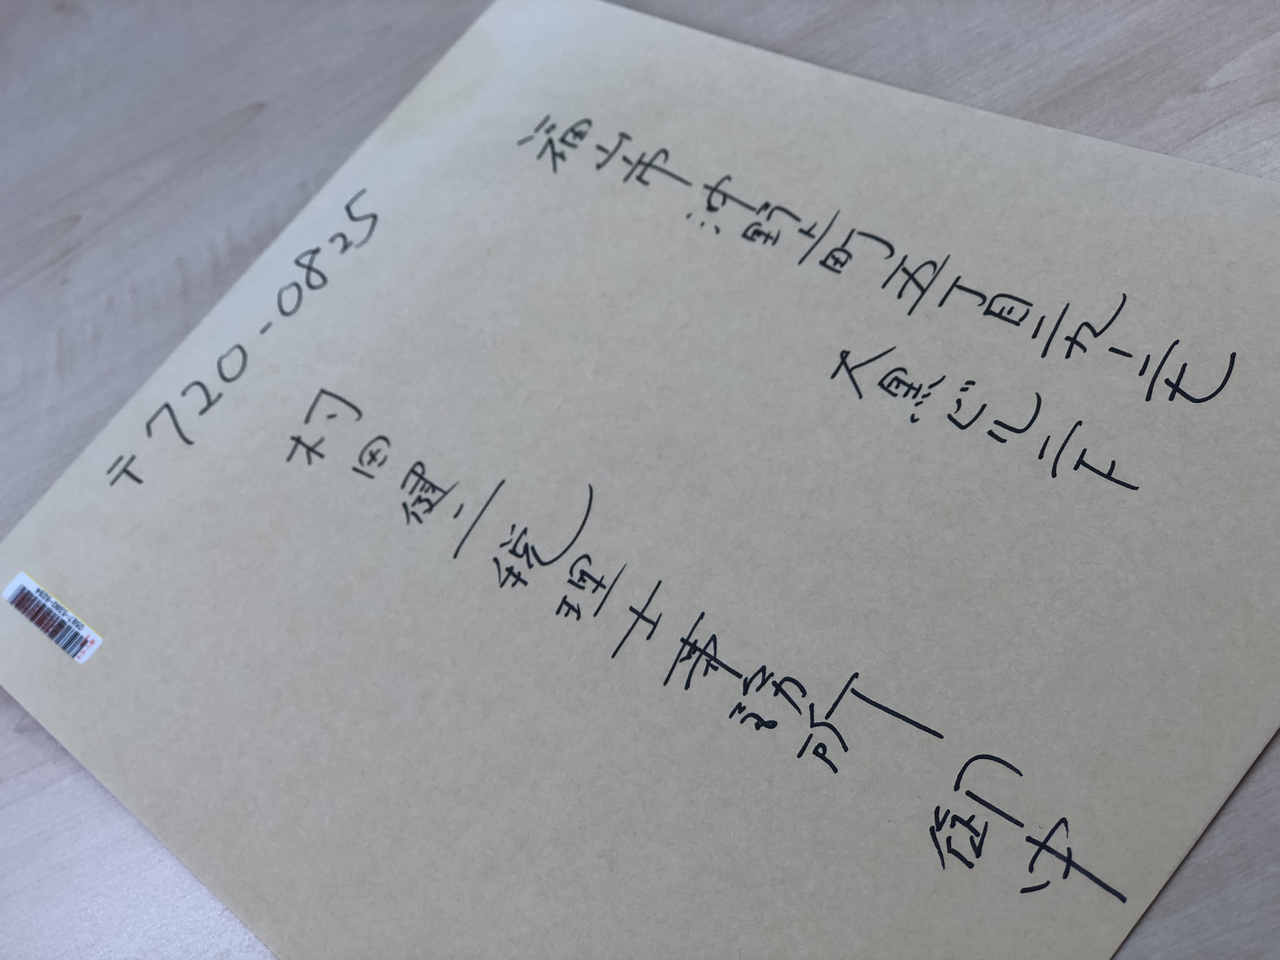 〒720-0825
福山市沖野上町五丁目二九ー二七
大黒ビル二F
村田健二税理士事務所 御中